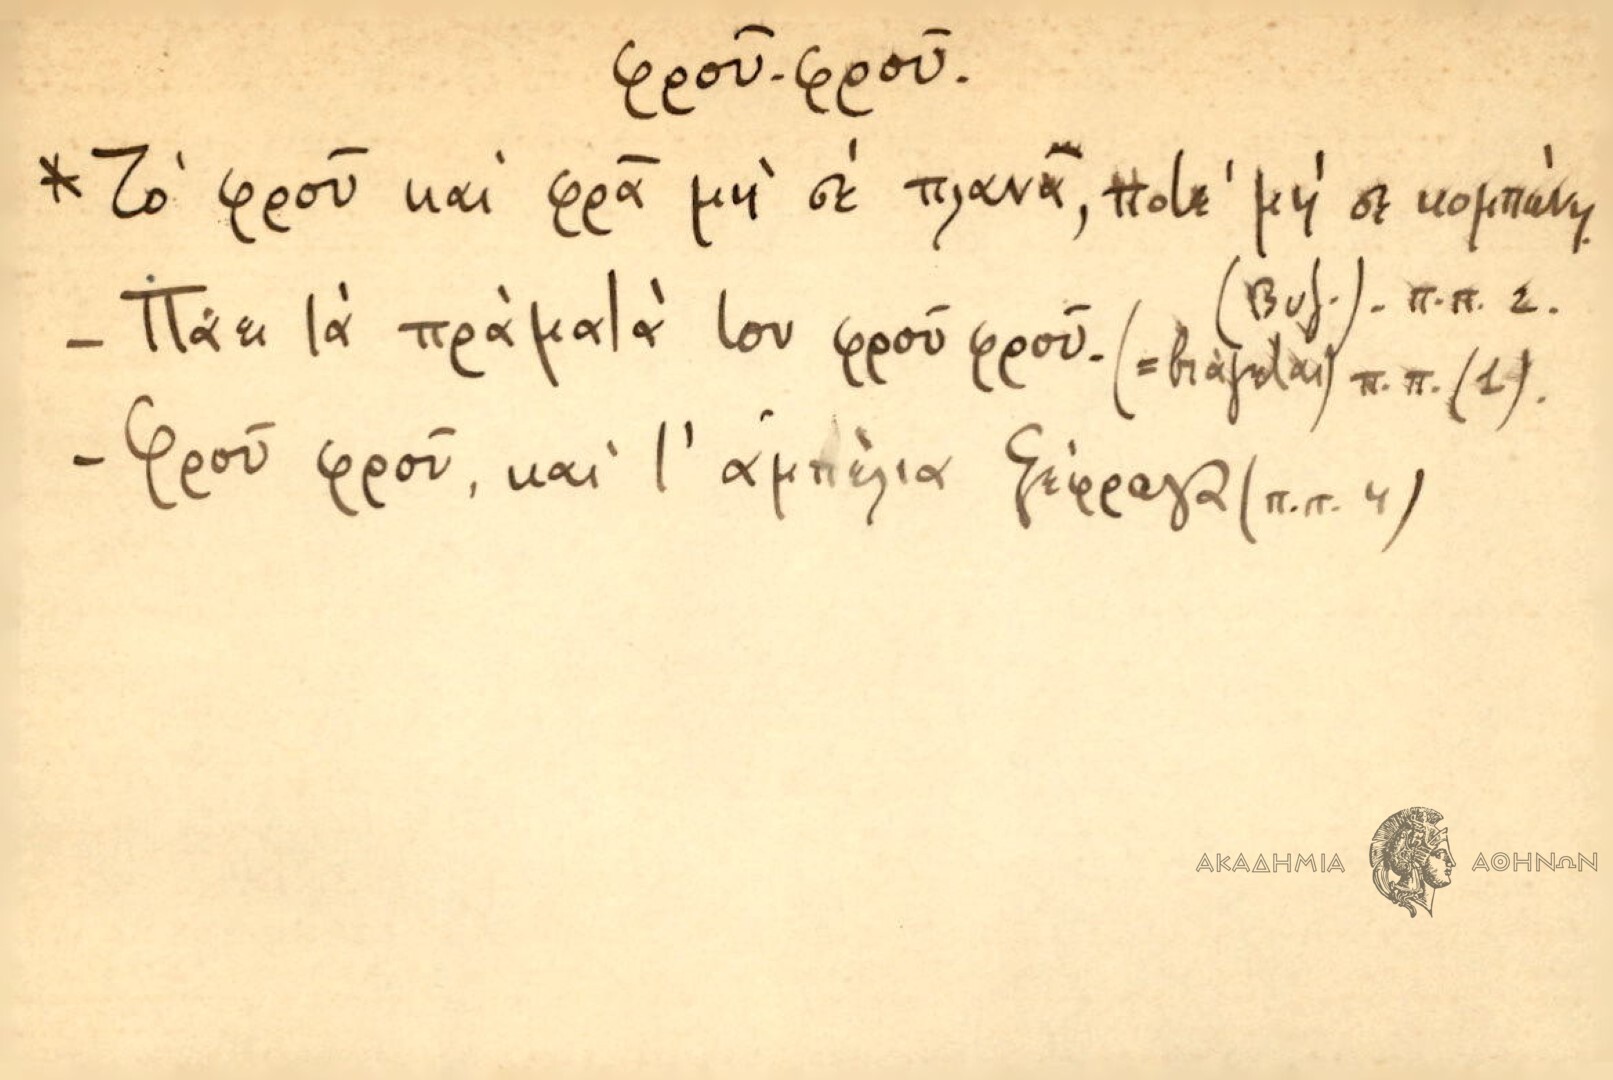 φροῦ-φροῦ.
* Τὸ φροῦ καὶ φρᾶ μὴ σὲ πλανᾶ, ποτὲ μὴ σε κομπώνη
(Βυζ.)- π.π. 2.
- Πάει τὰ πράματά του φροῦ φροῦ- (= βιάζεται) π.π. (1).
- Φροῦ φροῦ, καὶ τ' ἀμπέλια ξέφραγα (π.π. 4)
ΑΚΑΔΗΜΙΑ ΑΘΗΝΩΝ